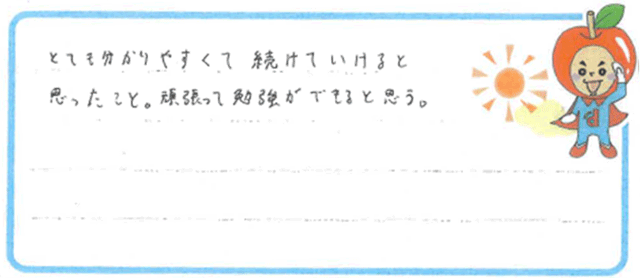 とても分かりやすくて続けていけると
思ったこと。頑張って勉強ができると思う。